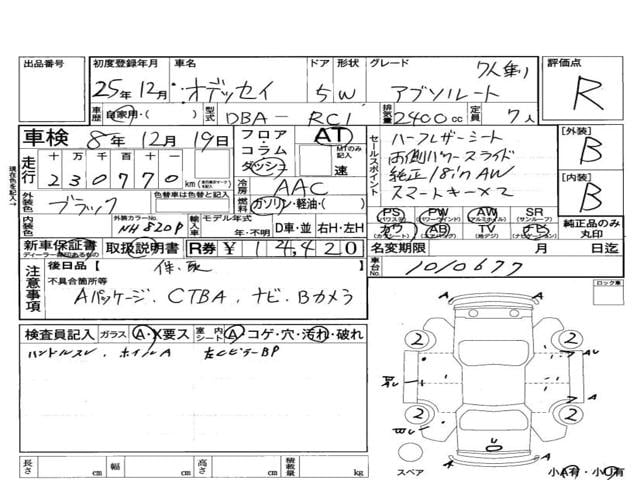 出品番号
初度登録年月 車名 ドア 形状 グレード 7人乗り 評価点
25年12月 オデッセイ 5 W アブソルート R
車歴 自家用・( ) 型式 DBA-RC1 排気量 2400cc 定員 7人
車検 8年12月19日 フロア・コラム・ダッシュ AT MTのみ記入 速
セールスポイント ハーフレザーシート
両側パワースライド
純正18inAW
スマートキー×2
[外装] B
[内装] B
走行 十万千百十 230770 km
冷房 AAC
燃料 ガソリン・軽油・( )
外装色 ブラック 色替車は色替と記入
PS PW AW SR
(パワステ) (パワーウインド) (アルミホイル) (サンルーフ)
カワ AB TV ナビ
(カワシート) (エアバッグ) (地デジ) (ナビゲーション)
純正品のみ丸印
内装色 外装カラーNo. NH820P 輸入車 モデル年式 年・不明 D車・並 右H・左H
新車保証書 取扱説明書 R券 ¥14,420 名変期限 月 日迄
ディーラー印あるもの
注意事項 後日品【 】
不具合箇所等
Aパッケージ. CTBA. ナビ. Bカメラ
車台No. 1010677
ロック車
検査員記入 ガラス A・X要ス 室内シート A コゲ・穴・汚れ・破れ
ハンドルスレ. ホイルA 左CピラーBP
2 2
AU
A
2 2
A
U
A
スペア 小A有・小U有
長さ cm 幅 cm 高さ cm 積載量 kg